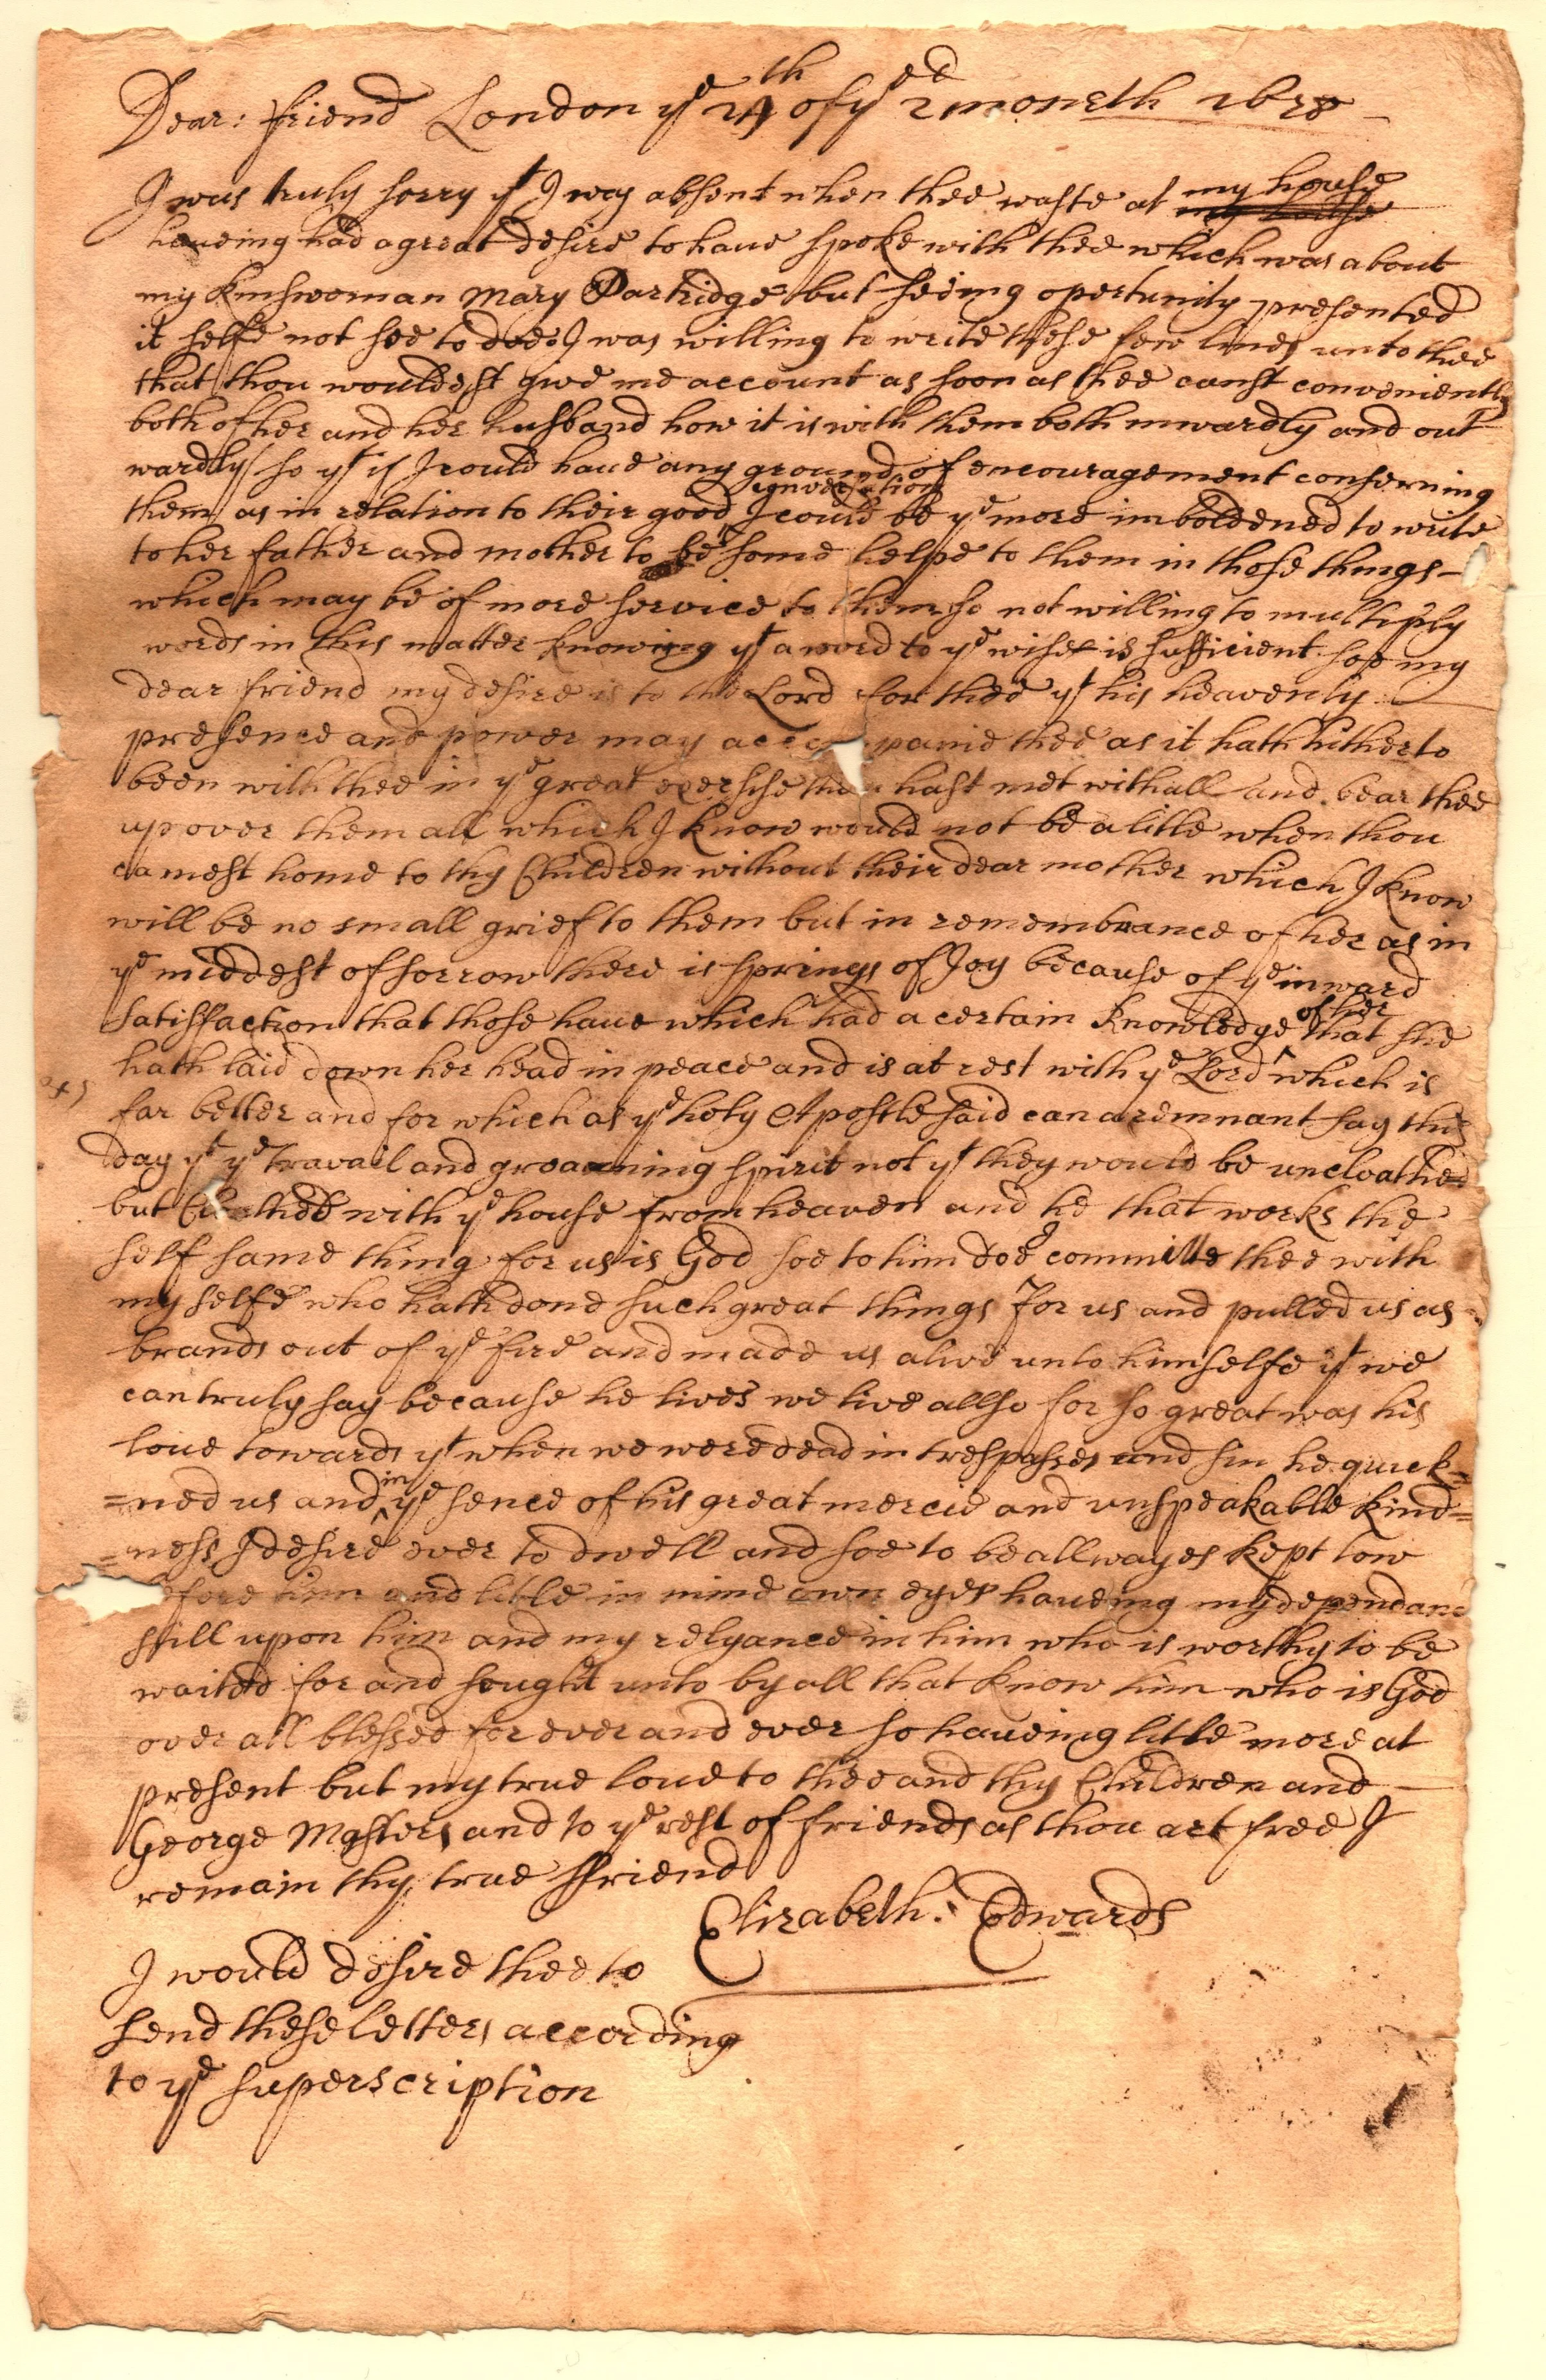 Dear: friend London ye 24th of ye 2ed moneth 1678
I was truly sorry yt I was absent when thee waste at my house
haveing had a great desire to have spoke with thee which was about
my kinswoman Mary Partridge but seeing opertunity presented
it selfe not soe to doe I was willing to write these few lines unto thee
that thou wouldest give me account as soon as thee canst conveniently
both of her and her husband how it is with them both inwardly and out
wardly so yt if I could have any ground of encouragement conserning
them as in relation to their good conversation I could be ye more imboldened to write
to her father and mother to be some helpe to them in those things
which may be of more service to them so not willing to multiply
words in this matter knowing yt a word to ye wise is sufficient soe my
dear friend my desire is to the Lord for thee yt his heavenly
presence and power may accompanie thee as it hath hitherto
been with thee in ye great exersise thou hast met withall and bear thee
up over them all which I know would not be a litle when thou
camest home to thy Children without their dear mother which I know
will be no small grief to them but in remembrance of her as in
ye middest of sorrow there is springs of Joy because of ye inward
satisfaction that those have which had a certain knowledge of her that she
hath laid down her head in peace and is at rest with ye Lord which is
far better and for which as ye holy Apostle said can a remnant say this
day yt ye travail and groanning spirit not yt they would be uncloathed
but Cloathed with ye house from heaven and he that works the
self same thing for us is God soe to him doe I committe thee with
my selfe who hath done such great things for us and pulled us as
brands out of ye fire and made us alive unto himselfe yt we
can truly say because he lives we live allso for so great was his
love towards yt when we were dead in trespasses and sin he quick=
=ned us and in ye sence of his great mercie and unspeakable kind=
=ness I desire ever to dwell and soe to be allwayes kept low
before him and litle in mine own eyes haveing my dependanc
still upon him and my relyance in him who is worthy to be
waited for and sought unto by all that know him who is God
over all blessed for ever and ever so haveing litle more at
present but my true love to thee and thy Children and
George Masters and to ye rest of friends as thou art free I
remain thy true ffriend
Elizabeth: Edwards
I would desire thee to
send these letters according
to ye superscription